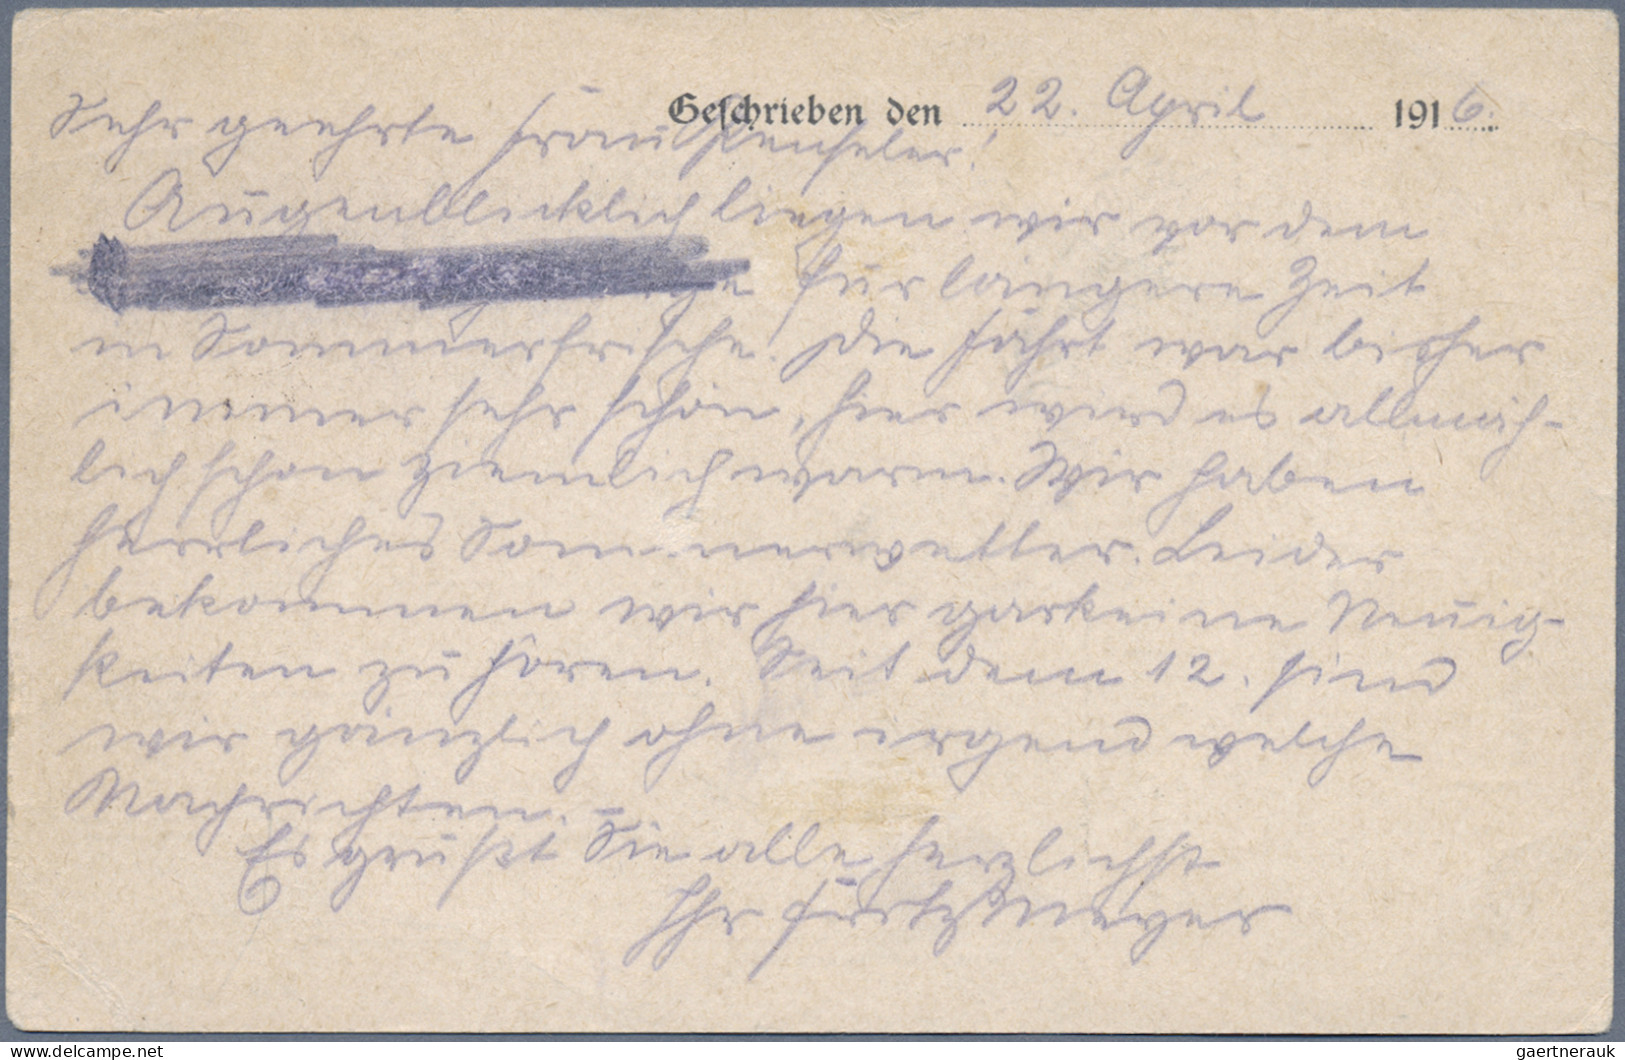 Geschrieben den 22. April 1916.
Sehr geehrte Frau
Augenblicklich liegen wir vor dem
für längere Zeit
in Sommerfrische. Die Fahrt war bisher
immer sehr schön, hier wird es allmäh-
lich schon ziemlich warm. Wir haben
herrliches Sommerwetter. Leider
bekommen wir hier garkeine Neuig-
keiten zu hören. Seit dem 12. sind
wir gänzlich ohne irgend welche
Nachrichten. –
Es grüßt Sie alle herzlichst
Ihr
www.delcampe.net
gaertnerauk